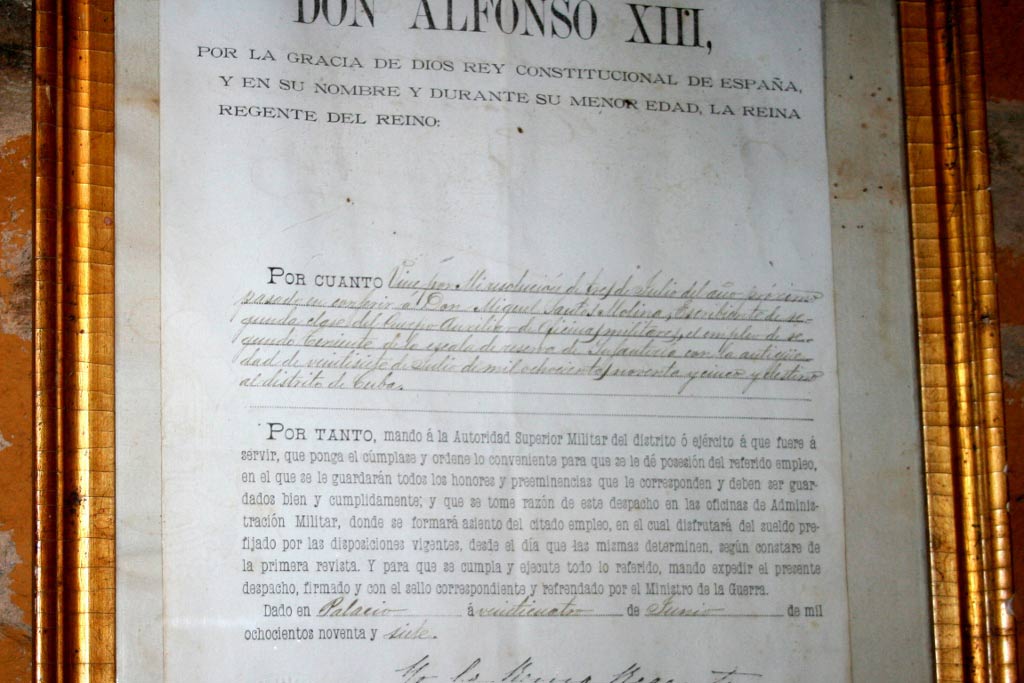 DON ALFONSO XIII,
POR LA GRACIA DE DIOS REY CONSTITUCIONAL DE ESPAÑA,
Y EN SU NOMBRE Y DURANTE SU MENOR EDAD, LA REINA
REGENTE DEL REINO:
POR CUANTO Vine por Mi resolución de de Julio del año próximo
pasado en conferir a Don Miguel Santos Molina, Escribiente de se-
gunda clase del Cuerpo Auxiliar de Oficinas militares, el empleo de se-
gundo teniente de la escala de reserva de Infantería con la antigüe-
dad de veintisiete de Julio de mil ochocientos noventa y cinco y destino
al distrito de Cuba.
POR TANTO, mando á la Autoridad Superior Militar del distrito ó ejército á que fuere á
servir, que ponga el cúmplase y ordene lo conveniente para que se le dé posesión del referido empleo,
en el que se le guardarán todos los honores y preeminencias que le corresponden y deben ser guar-
dados bien y cumplidamente; y que se tome razón de este despacho en las oficinas de Adminis-
tración Militar, donde se formará asiento del citado empleo, en el cual disfrutará del sueldo pre-
fijado por las disposiciones vigentes, desde el día que las mismas determinen, según constare de
la primera revista. Y para que se cumpla y ejecute todo lo referido, mando expedir el presente
despacho, firmado y con el sello correspondiente y refrendado por el Ministro de la Guerra.
Dado en Palacio á veinticuatro de Junio de mil
ochocientos noventa y siete.
Yo la Reina Regente